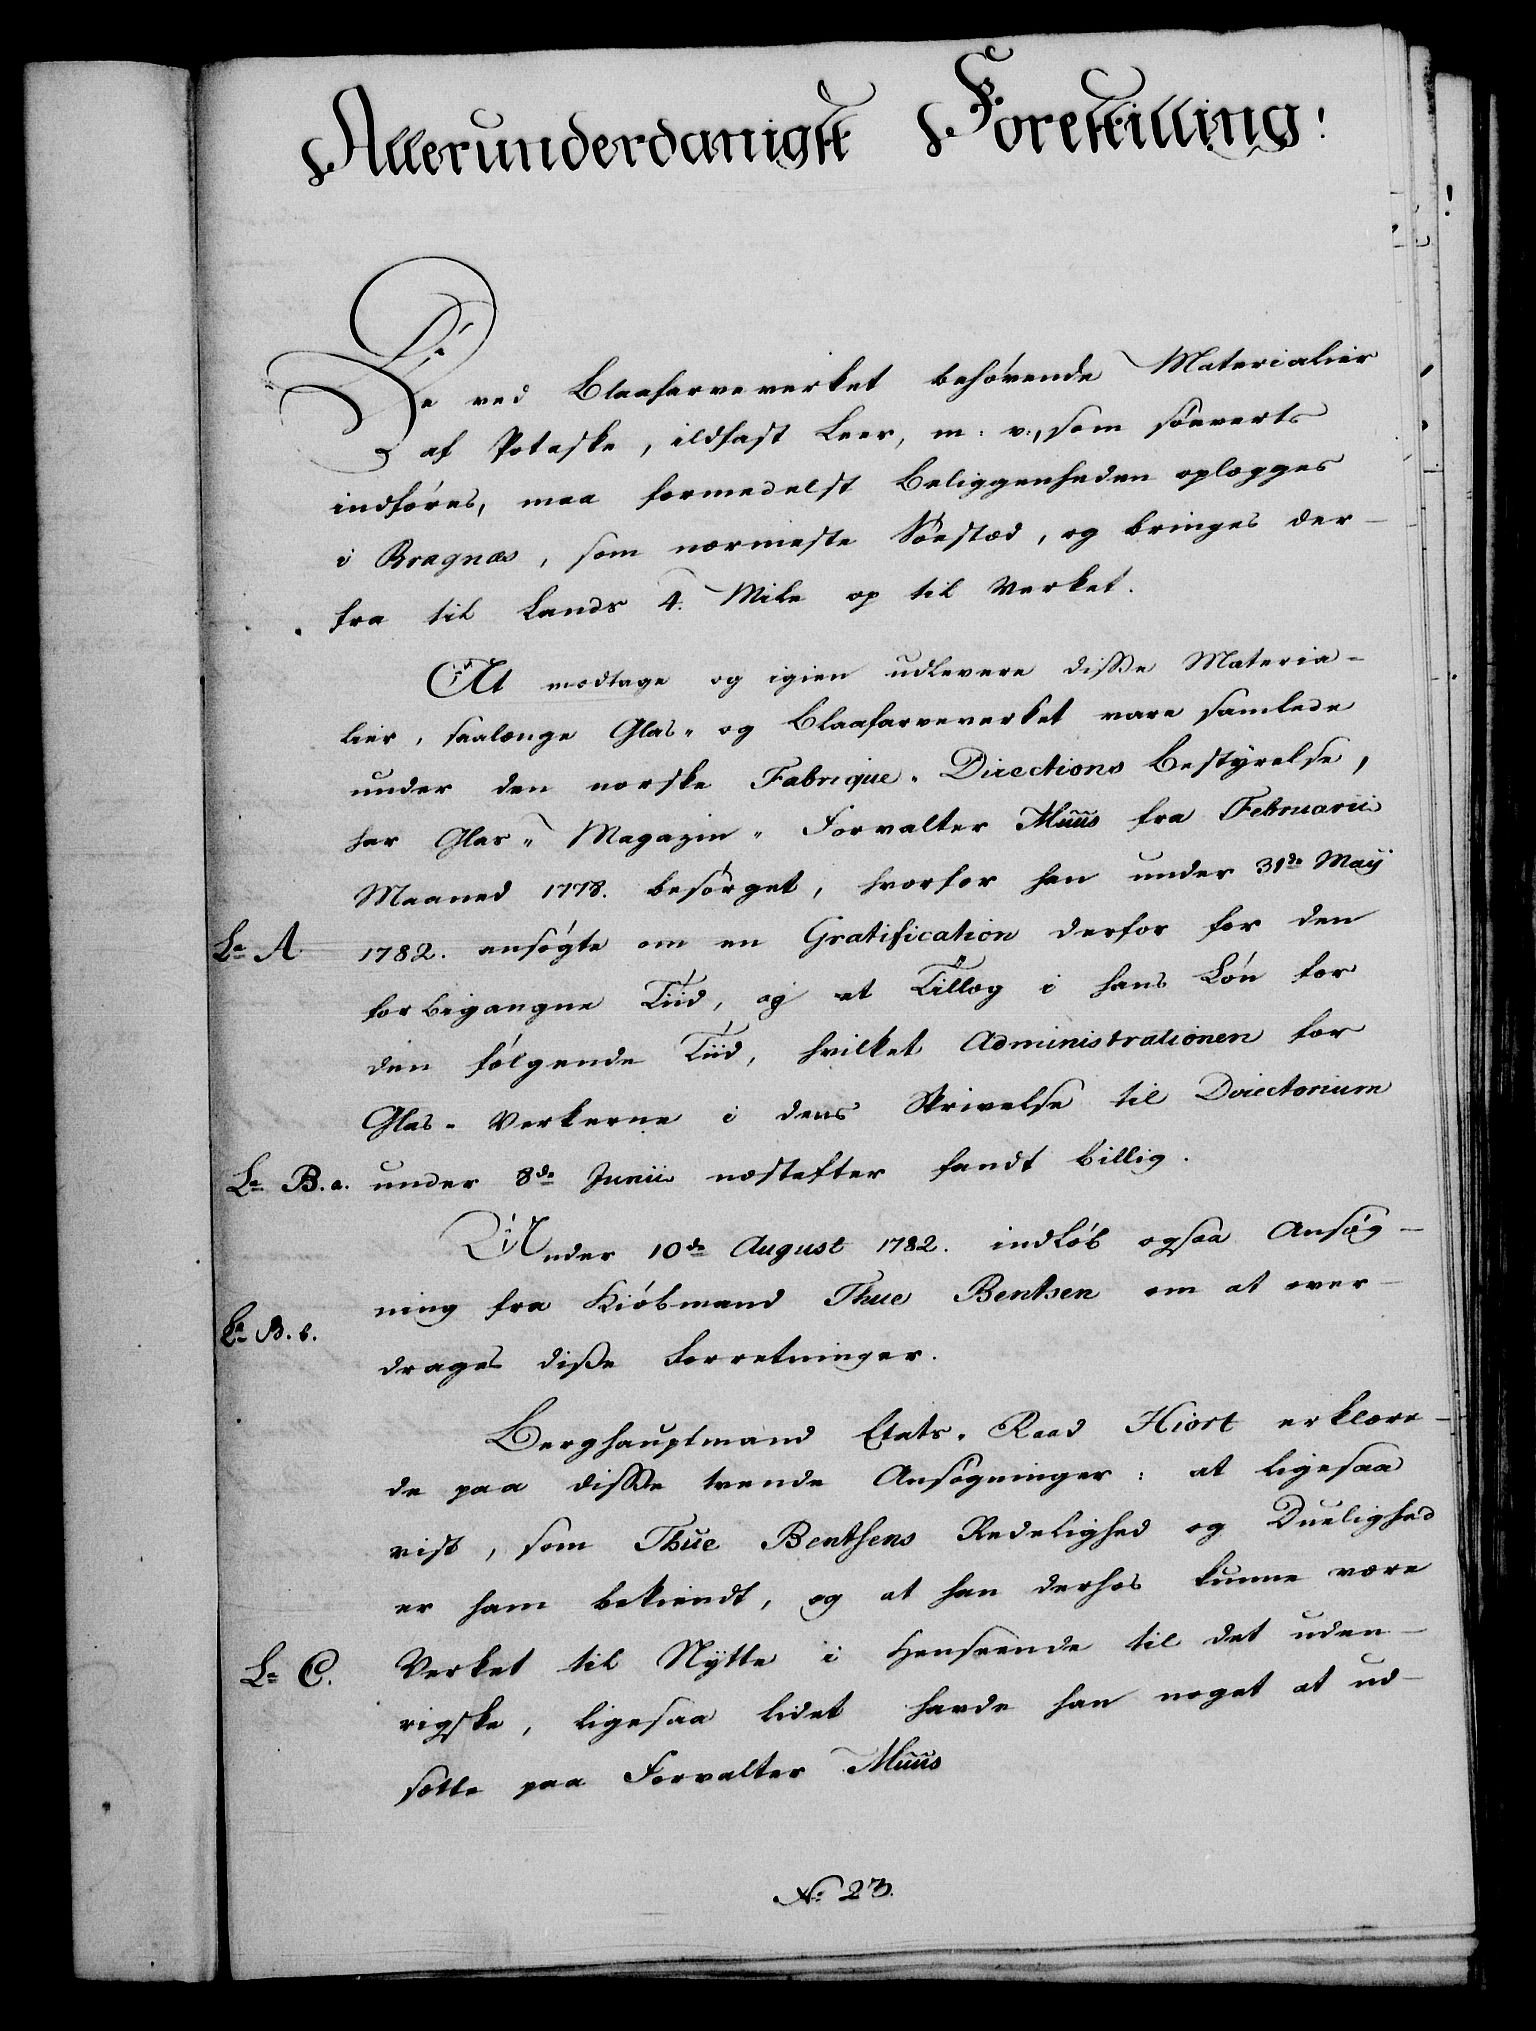 Allerunderdanigst Forestilling!
De ved Blaafarveverket behøvende Materialier
af Potaske, ildfast Leer, m: v:, som søeverts
indføres, maa formedelst Beliggenheden oplægges
i Bragnæs, som nærmeste Søestæd, og bringes der-
fra til Lands 4. Mile op til Verket.
At modtage og igien udlevere disse Materia-
lier, saalænge Glas- og Blaafarveverket vare samlede
under den norske Fabrique- Directions Bestyrelse,
har Glas- Magazin- Forvalter Muus fra Februarii
Maaned 1778. besørget, hvorfor han under 31de Maij
La A. 1782. ansøgte om en Gratification derfor for den
forbigangne Tiid, og et Tillæg i hans Løn for
den følgende Tiid, hvilket Administrationen for
Glas- Verkerne i dens Skrivelse til Directorium
La B. a. under 8de Junii næstefter fandt billig.
Under 10de August 1782. indløb ogsaa Ansøg-
ning fra Kiøbmand Thue Bentsen om at over-
La B. b.
drages disse Forretninger.
Berghauptmand Etats- Raad Hiort erklære-
de paa disse tvende Ansøgninger: at ligesaa
vist, som Thue Bentsens Redelighed og Duelighed
er ham bekiendt, og at han derhos kunne være
La C. Verket til Nytte i Henseende til det uden-
rigske, ligesaa lidet havde han noget at ud-
sætte paa Forvalter Muus
No 23.